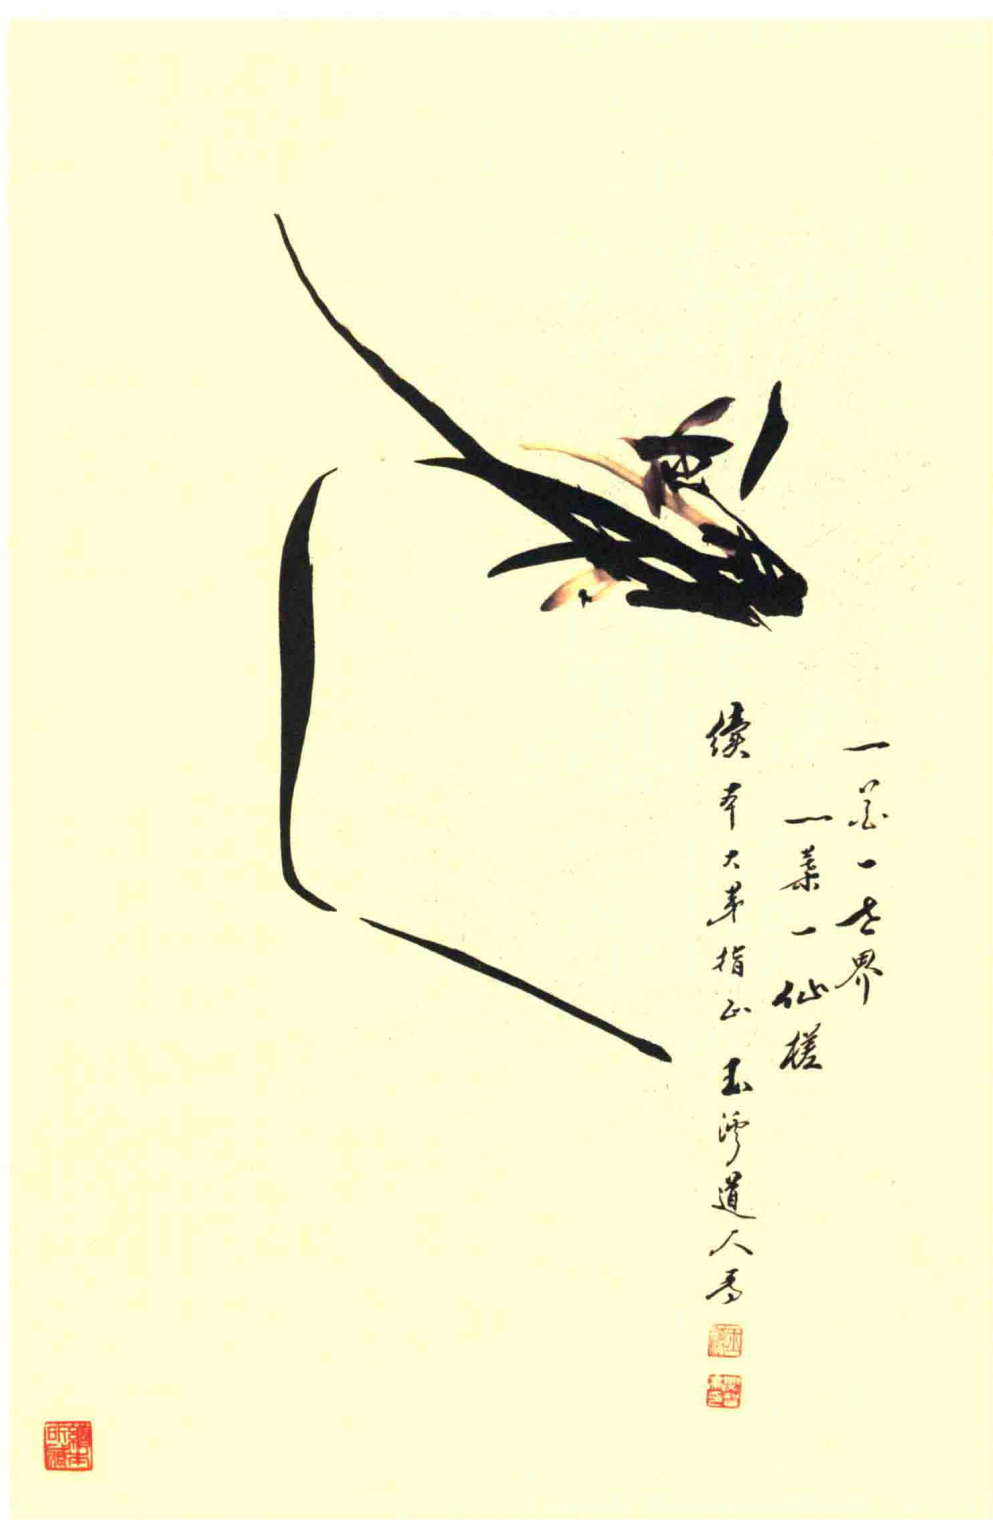 一花一世界
一葉一仙槎
續本大弟指正 玉溪道人寫